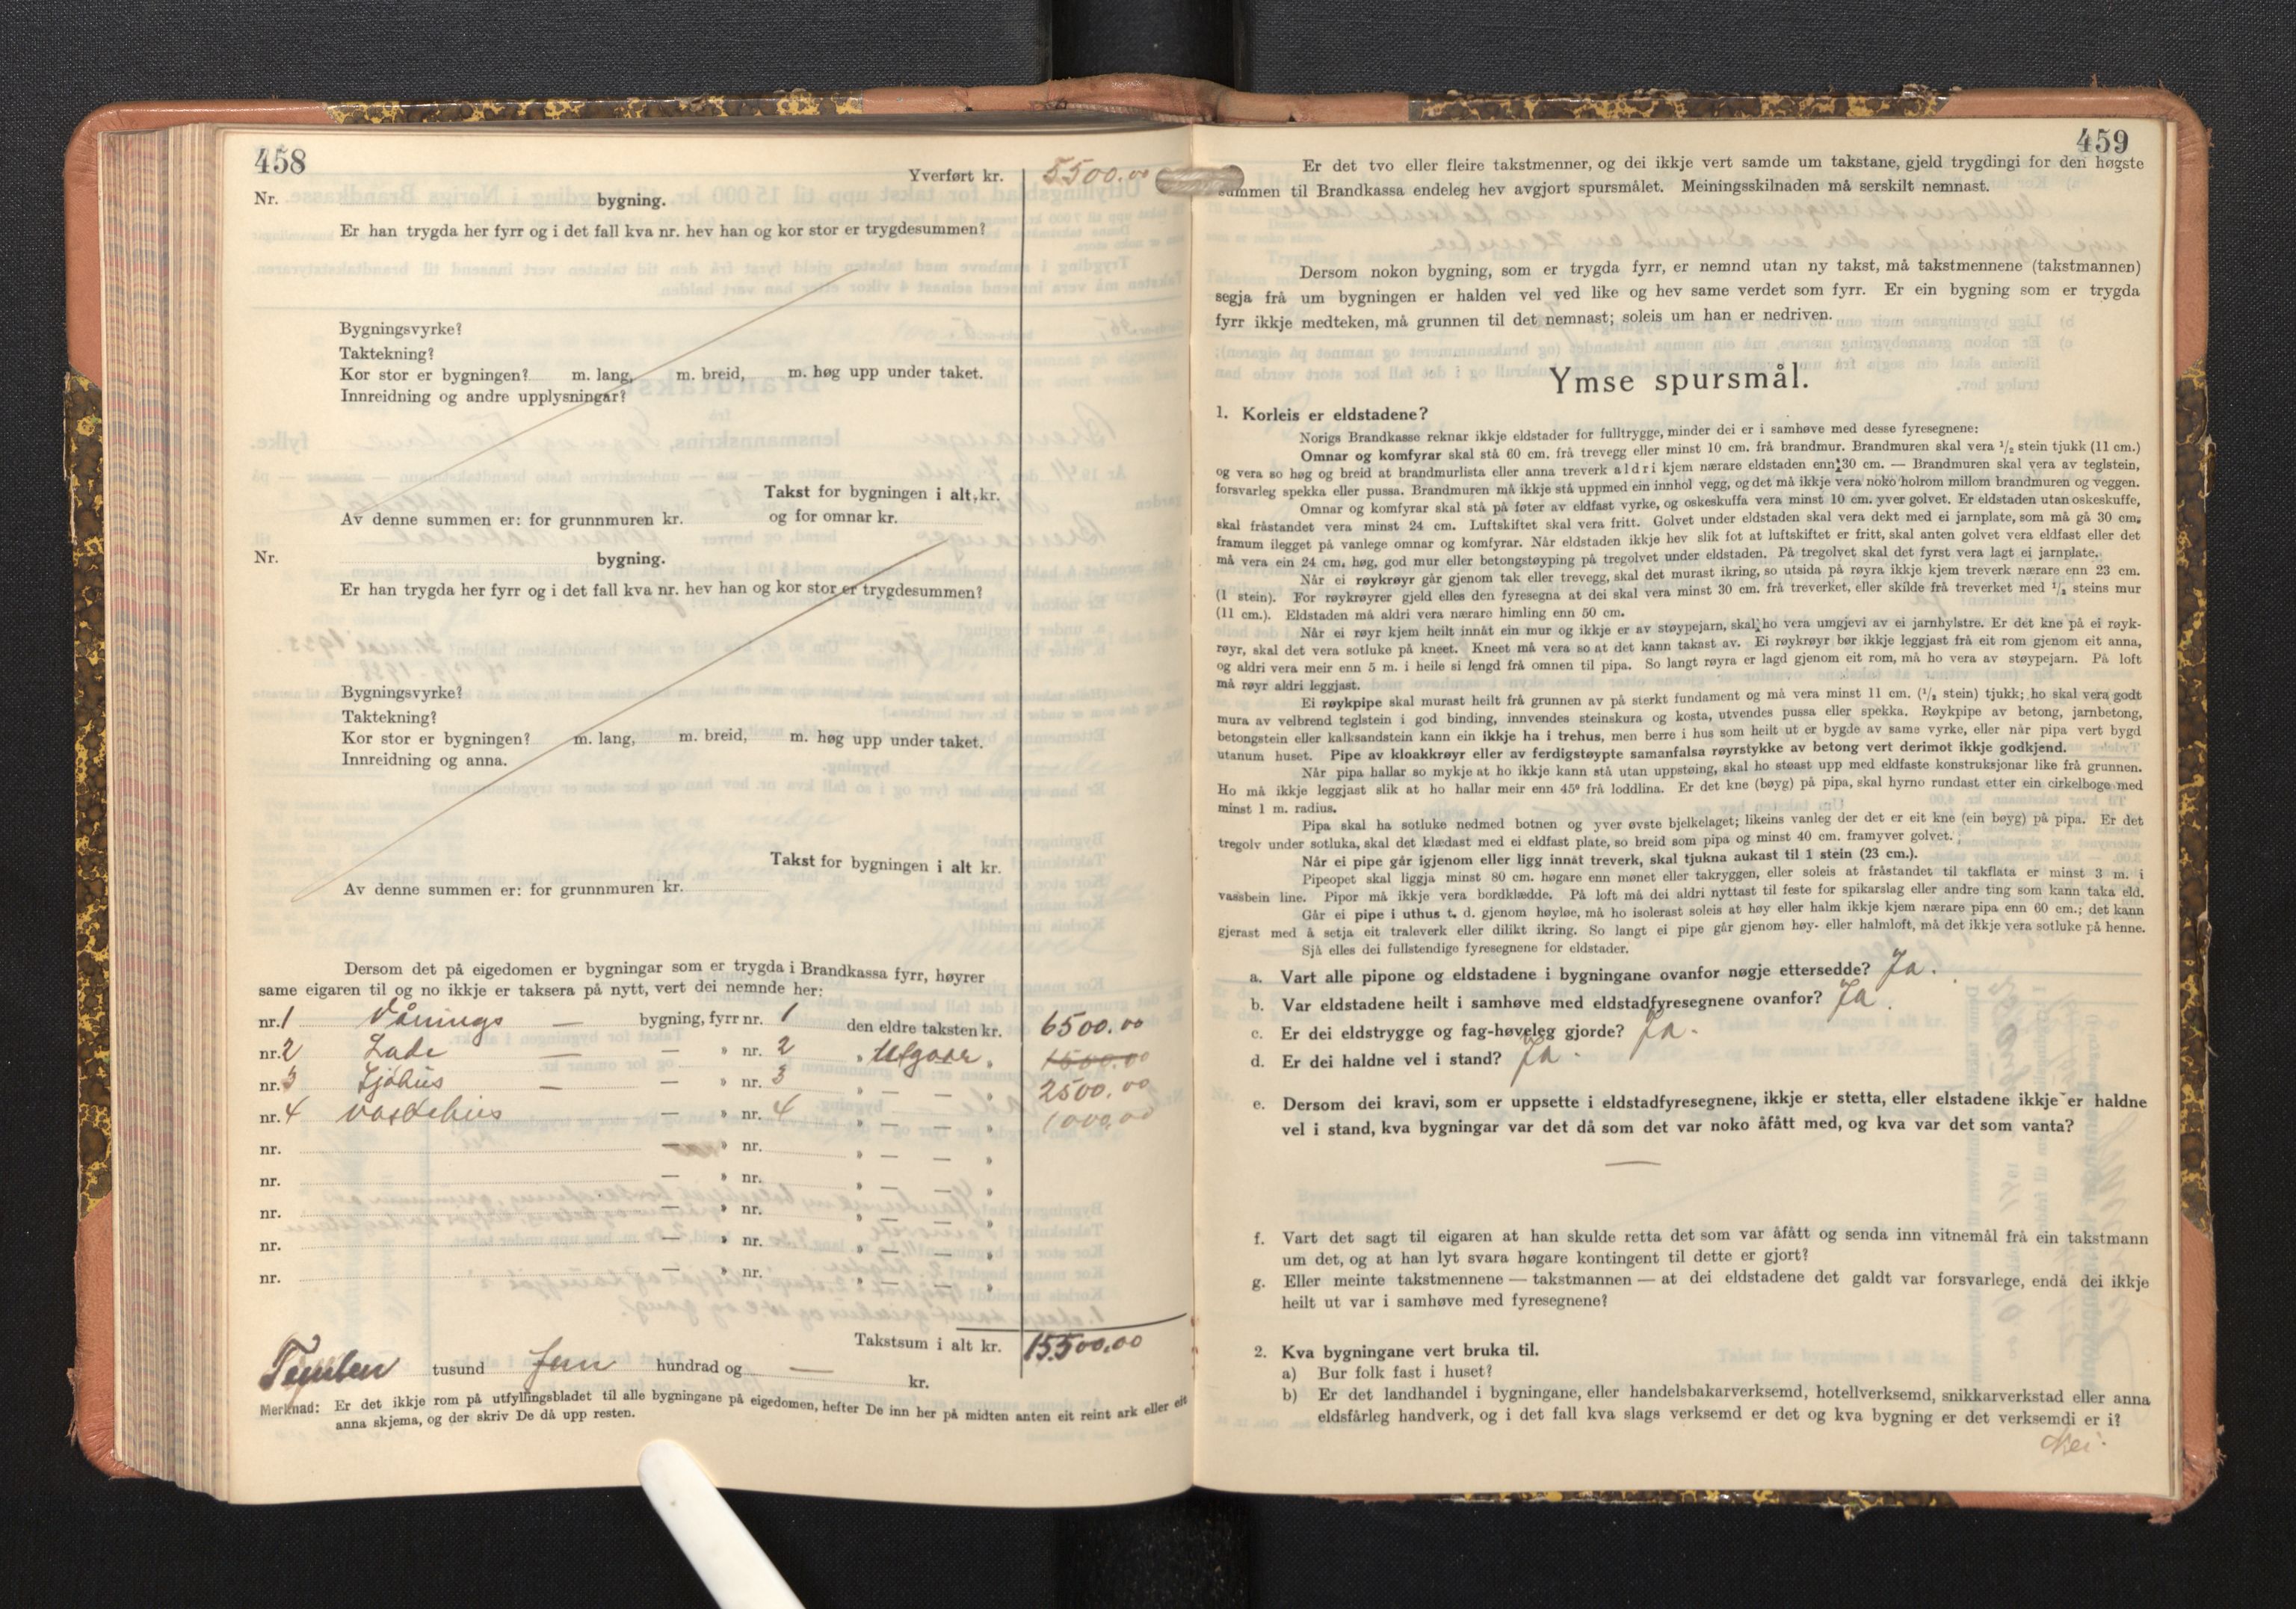 458
Yverført kr. 5500.00
Nr. bygning.
Er han trygda her fyrr og i det fall kva nr. hev han og kor stor er trygdesummen?
Bygningsvyrke?
Taktekning?
Kor stor er bygningen? m. lang, m. breid, m. høg upp under taket.
Innreidning og andre upplysningar?
Takst for bygningen i alt, kr.
Av denne summen er: for grunnmuren kr. og for omnar kr.
Nr. bygning.
Er han trygda her fyrr og i det fall kva nr. hev han og kor stor er trygdesummen?
Bygningsvyrke?
Taktekning?
Kor stor er bygningen? m. lang, m. breid, m. høg upp under taket.
Innreidning og anna.
Takst for bygningen i alt kr.
Av denne summen er: for grunnmuren kr.
Dersom det på eigedomen er bygningar som er trygda i Brandkassa fyrr, høyrer
same eigaren til og no ikkje er taksera på nytt, vert dei nemnde her:
nr. 1 Vånings — bygning, fyrr nr. 1 den eldre taksten kr. 6500.00
nr. 2 Lade — — » nr. 2 „ Utgaar „ 1500.00
nr. 3 Sjøhus — — » nr. 3 „ — — „ 2500.00
nr. 4 Vaskehus — » nr. 4 „ — — „ 1000,00
nr. — » nr. „ — — „
nr. — » nr. „ — — „
nr. — » nr. „ — — „
nr. — » nr. „ — — „
nr. — » nr. „ — — „
Takstsum i alt kr. 15500,00
Femten tusund fem hundrad og — kr.
Merknad: Er det ikkje rom på utfyllingsbladet til alle bygningane på eigedomen, hefter De inn her på midten anten eit reint ark eller eit
anna skjema, og der skriv De då upp resten.
459
Er det tvo eller fleire takstmenner, og dei ikkje vert samde um takstane, gjeld trygdingi for den høgste
summen til Brandkassa endeleg hev avgjort spursmålet. Meiningsskilnaden må serskilt nemnast.
Dersom nokon bygning, som er trygda fyrr, er nemnd utan ny takst, må takstmennene (takstmannen)
segja frå um bygningen er halden vel ved like og hev same verdet som fyrr. Er ein bygning som er trygda
fyrr ikkje medteken, må grunnen til det nemnast; soleis um han er nedriven.
Ymse spursmål.
1. Korleis er eldstadene?
Norigs Brandkasse reknar ikkje eldstader for fulltrygge, minder dei er i samhøve med desse fyresegnene:
Omnar og komfyrar skal stå 60 cm. frå trevegg eller minst 10 cm. frå brandmur. Brandmuren skal vera 1/2 stein tjukk (11 cm.)
og vera so høg og breid at brandmurlista eller anna treverk aldri kjem nærare eldstaden enn 30 cm. — Brandmuren skal vera av teglstein,
forsvarleg spekka eller pussa. Brandmuren må ikkje stå uppmed ein innhol vegg, og det må ikkje vera noko holrom millom brandmuren og veggen.
Omnar og komfyrar skal stå på føter av eldfast vyrke, og oskeskuffa vera minst 10 cm. yver golvet. Er eldstaden utan oskeskuffe,
skal fråstandet vera minst 24 cm. Luftskiftet skal vera fritt. Golvet under eldstaden skal vera dekt med ei jarnplate, som må gå 30 cm.
framum ilegget på vanlege omnar og komfyrar. Når eldstaden ikkje hev slik fot at luftskiftet er fritt, skal anten golvet vera eldfast eller det
må vera ein 24 cm. høg, god mur eller betongstøyping på tregolvet under eldstaden. På tregolvet skal det fyrst vera lagt ei jarnplate.
Når ei røykrøyr går gjenom tak eller trevegg, skal det murast ikring, so utsida på røyra ikkje kjem treverk nærare enn 23 cm.
(1 stein). For røykrøyrer gjeld elles den fyresegna at dei skal vera minst 30 cm. frå treverket, eller skilde frå treverket med 1/2 steins mur
(11 cm.). Eldstaden må aldri vera nærare himling enn 50 cm.
Når ei røyr kjem heilt innåt ein mur og ikkje er av støypejarn, skal ho vera umgjevi av ei jarnhylstre. Er det kne på ei røyk-
røyr, skal det vera sotluke på kneet. Kneet må vera so at det kann takast av. Ei røykrøyr bør ikkje leggjast frå eit rom gjenom eit anna,
og aldri vera meir enn 5 m. i heile si lengd frå omnen til pipa. So langt røyra er lagd gjenom eit rom, må ho vera av støypejarn. På loft
må røyr aldri leggjast.
Ei røykpipe skal murast heilt frå grunnen av på sterkt fundament og må vera minst 11 cm. (1/2 stein) tjukk; ho skal vera godt
mura av velbrend teglstein i god binding, innvendes steinskura og kosta, utvendes pussa eller spekka. Røykpipe av betong, jarnbetong,
betongstein eller kalksandstein kann ein ikkje ha i trehus, men berre i hus som heilt ut er bygde av same vyrke, eller når pipa vert bygd
utanum huset. Pipe av kloakkrøyr eller av ferdigstøypte samanfalsa røyrstykke av betong vert derimot ikkje godkjend.
Når pipa hallar so mykje at ho ikkje kann stå utan uppstøing, skal ho støast upp med eldfaste konstruksjonar like frå grunnen.
Ho må ikkje leggjast slik at ho hallar meir enn 45° frå loddlina. Er det kne (bøyg) på pipa, skal hyrno rundast etter ein cirkelboge med
minst 1 m. radius.
Pipa skal ha sotluke nedmed botnen og yver øvste bjelkelaget; likeins vanleg der det er eit kne (ein bøyg) på pipa. Er det
tregolv under sotluka, skal det klædast med ei eldfast plate, so breid som pipa og minst 40 cm. framyver golvet.
Når ei pipe går igjenom eller ligg innåt treverk, skal tjukna aukast til 1 stein (23 cm.).
Pipeopet skal liggja minst 80 cm. høgare enn mønet eller takryggen, eller soleis at fråstandet til takflata er minst 3 m. i
vassbein line. Pipor må ikkje vera bordklædde. På loft må dei aldri nyttast til feste for spikarslag eller andre ting som kann taka eld.
Går ei pipe i uthus t. d. gjenom høyløe, må ho isolerast soleis at høy eller halm ikkje kjem nærare pipa enn 60 cm.; det kann
gjerast med å setja eit traleverk eller dilikt ikring. So langt ei pipe går gjenom høy- eller halmloft, må det ikkje vera sotluke på henne.
Sjå elles dei fullstendige fyresegnene for eldstader.
a. Vart alle pipone og eldstadene i bygningane ovanfor nøgje ettersedde? Ja.
b. Var eldstadene heilt i samhøve med eldstadfyresegnene ovanfor? Ja.
c. Er dei eldstrygge og fag-høveleg gjorde? Ja.
d. Er dei haldne vel i stand? Ja.
e. Dersom dei kravi, som er uppsette i eldstadfyresegnene, ikkje er stetta, eller elstadene ikkje er haldne
vel i stand, kva bygningar var det då som det var noko åfått med, og kva var det som vanta?
—
f. Vart det sagt til eigaren at han skulde retta det som var åfått og senda inn vitnemål frå ein takstmann
um det, og at han lyt svara høgare kontingent til dette er gjort?
g. Eller meinte takstmennene — takstmannen — at dei eldstadene det galdt var forsvarlege, endå dei ikkje
heilt ut var i samhøve med fyresegnene?
2. Kva bygningane vert bruka til.
a) Bur folk fast i huset?
b) Er det landhandel i bygningane, eller handelsbakarverksemd, hotellverksemd, snikkarverkstad eller anna
eldsfårleg handverk, og i det fall kva slags verksemd er det og kva bygning er det verksemdi er i?
Nei.